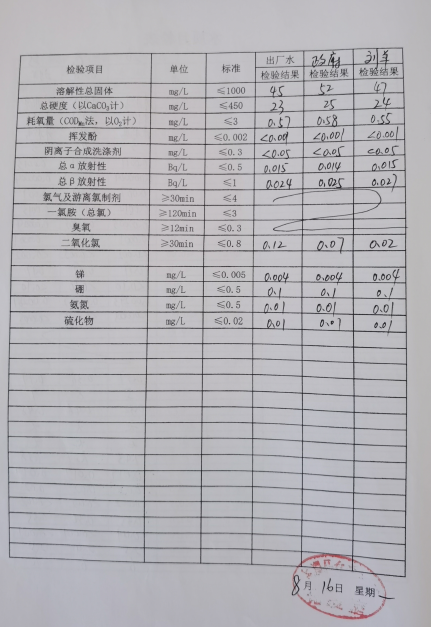 检验项目 单位 标准 出厂水 政府 刘羊
检验结果 检验结果 检验结果
溶解性总固体 mg/L ≤1000 45 52 47
总硬度(以CaCO₃计) mg/L ≤450 23 25 24
耗氧量(CODMn法，以O₂计) mg/L ≤3 0.57 0.58 0.55
挥发酚 mg/L ≤0.002 <0.001 <0.001 <0.001
阴离子合成洗涤剂 mg/L ≤0.3 <0.05 <0.05 <0.05
总α放射性 Bq/L ≤0.5 0.015 0.014 0.015
总β放射性 Bq/L ≤1 0.024 0.025 0.027
氯气及游离氯制剂 ≥30min ≤4
一氯胺(总氯) ≥120min ≤3
臭氧 ≥12min ≤0.3
二氧化氯 ≥30min ≤0.8 0.12 0.07 0.02
锑 mg/L ≤0.005 0.004 0.004 0.004
硼 mg/L ≤0.5 0.1 0.1 0.1
氨氮 mg/L ≤0.5 0.01 0.01 0.01
硫化物 mg/L ≤0.02 0.01 0.01 0.01
8月16日 星期一